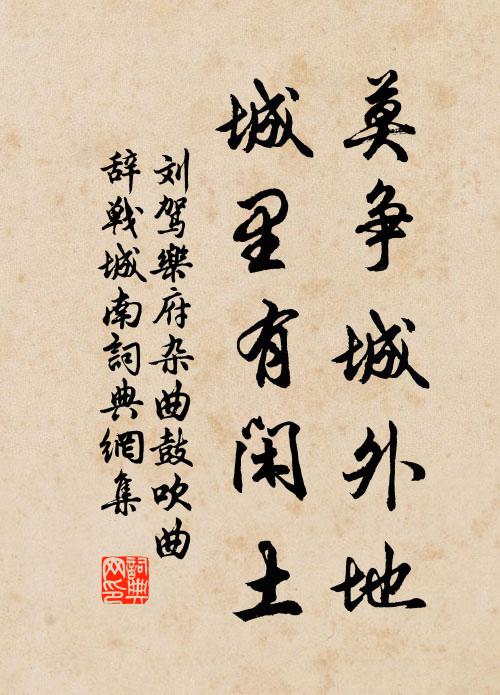 莫争城外地
城里有闲土
刘驾樂府杂曲鼓吹曲
辞戰城南詞典網集
詞典网印